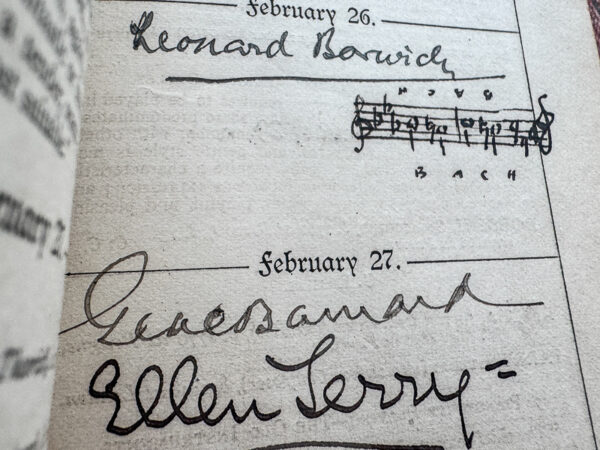 February 26.
Leonard Borwick
H C A B
B A C H
February 27.
Barnard
Ellen Terry